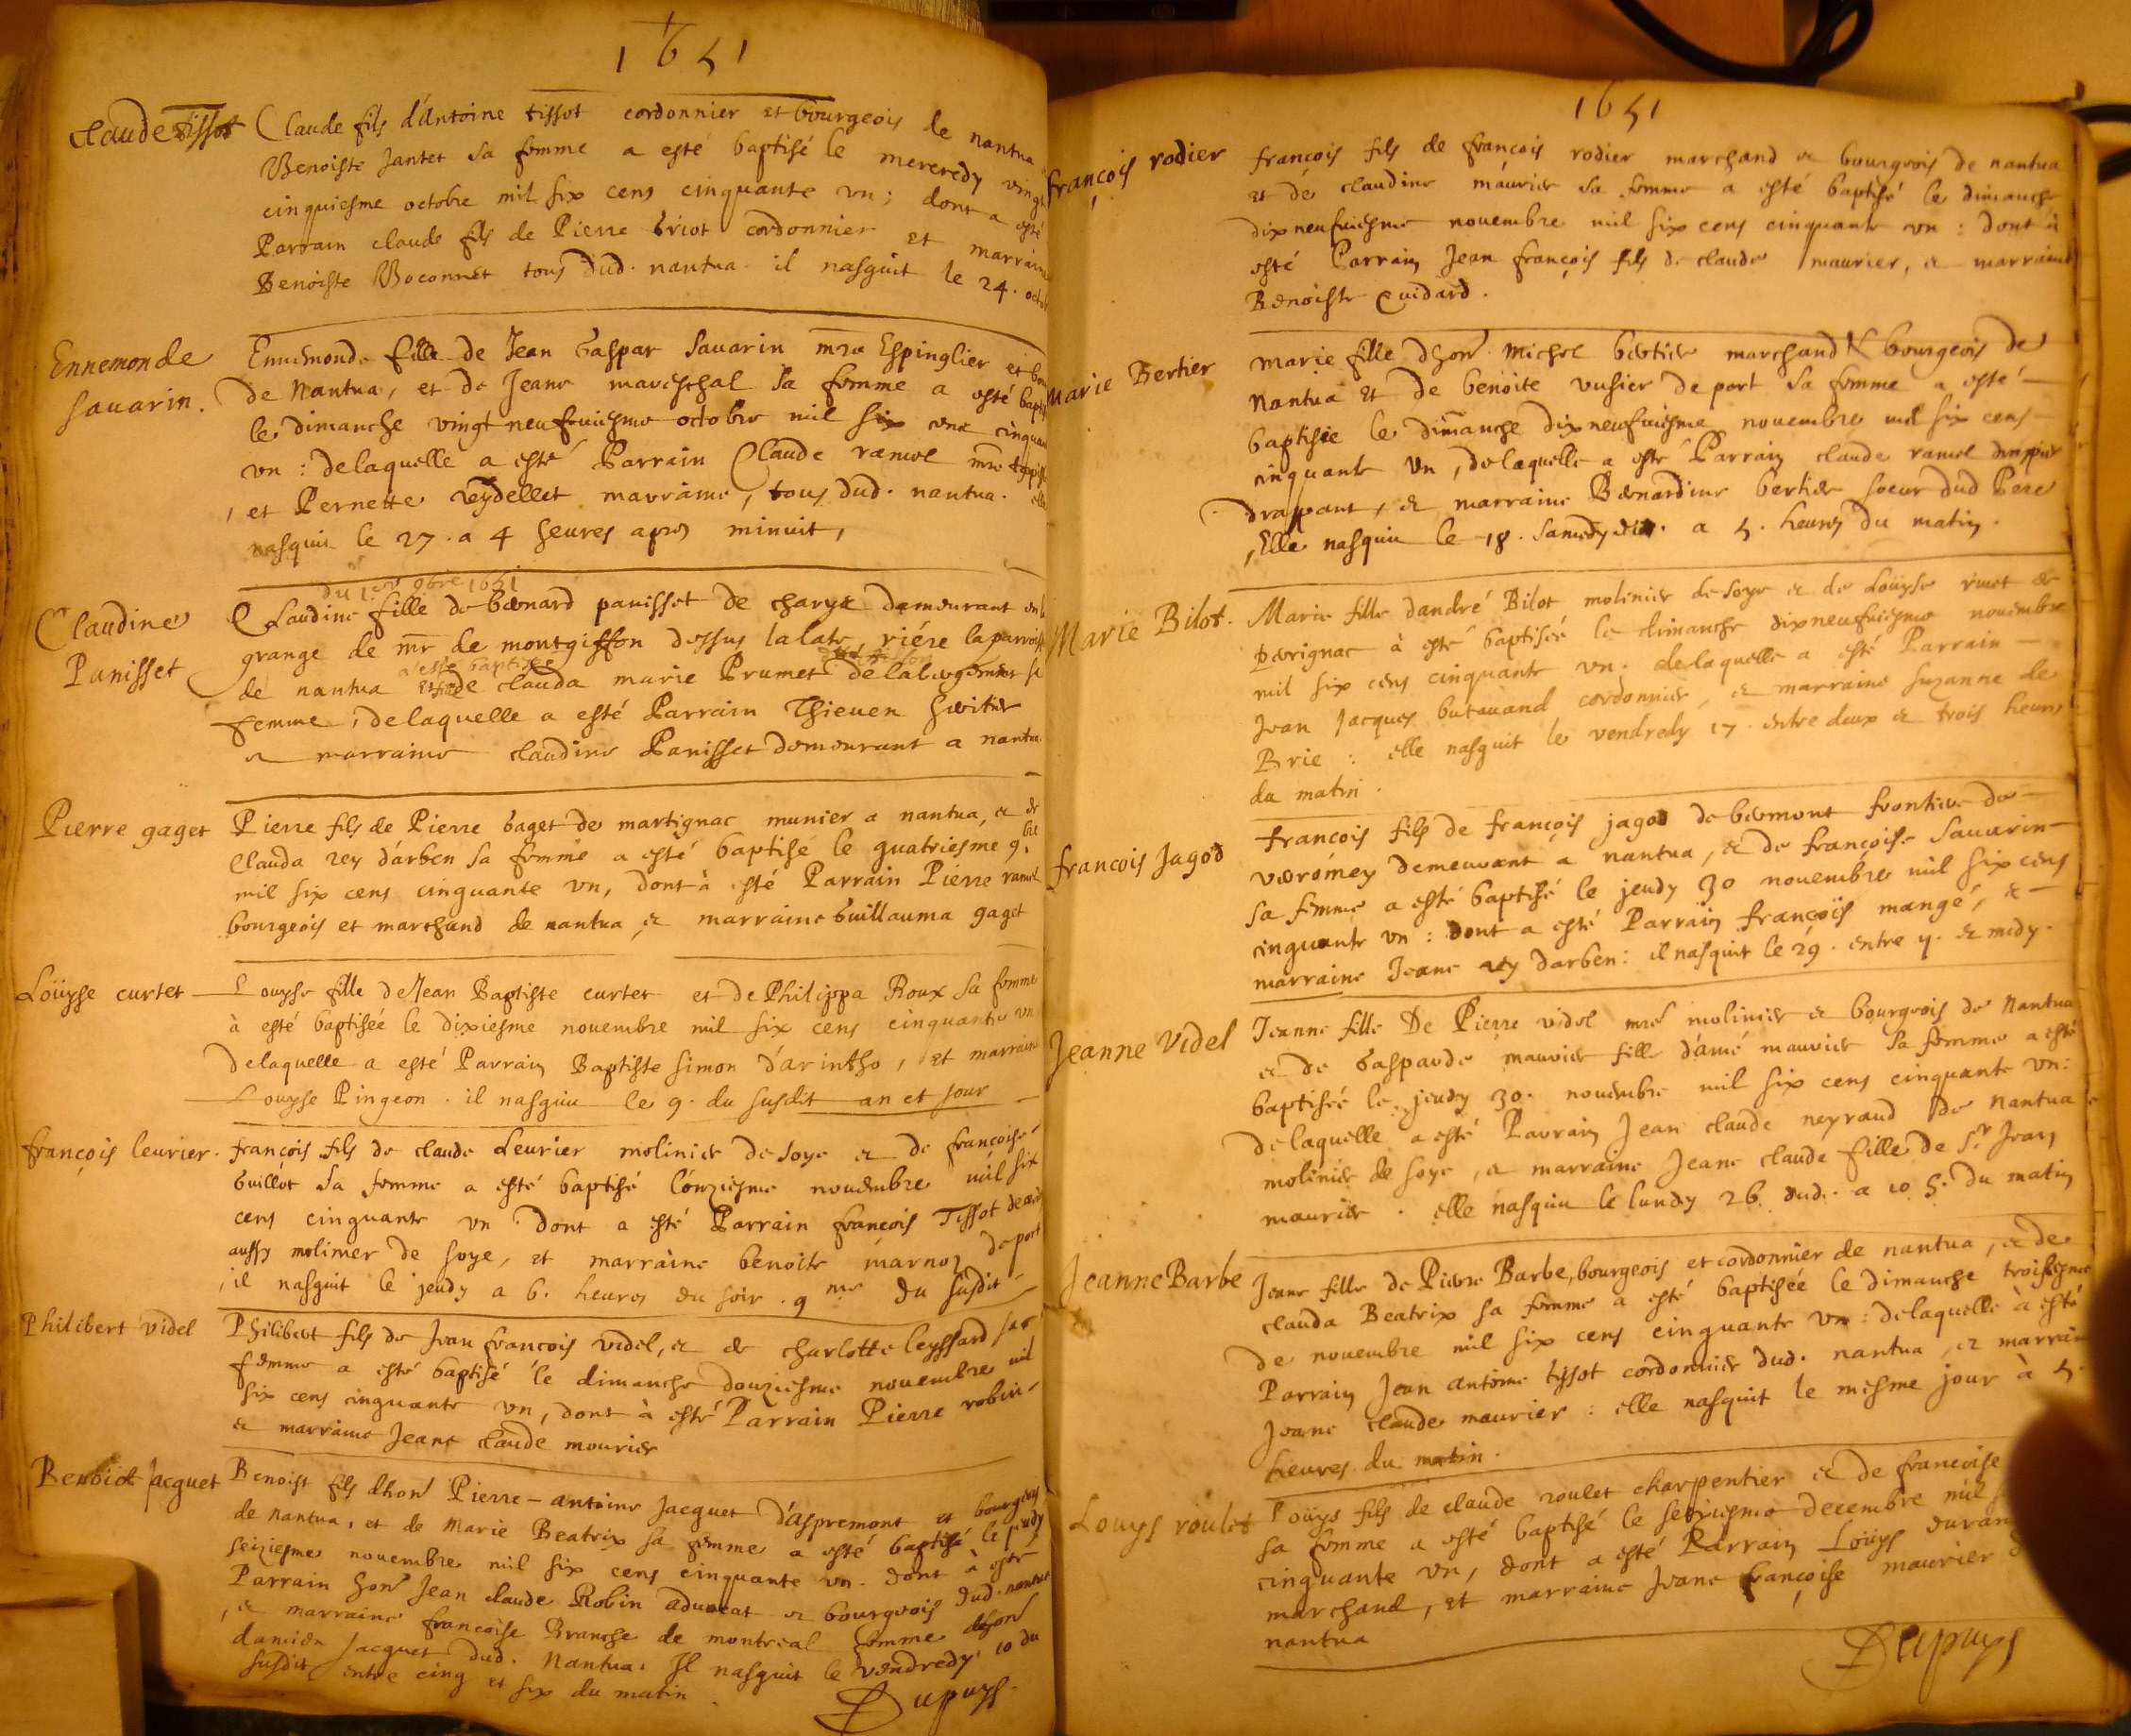 1651
Claude tissot
Claude fils d'Antoine tissot cordonnier et bourgeois de nantua
Benoiste Jantet sa femme a esté baptisé le mercredy vingt
cinquiesme octobre mil six cens cinquante un ; dont a esté
Parrain claude fils de Pierre briot cordonnier et marraine
Benoiste Boconnet tous dud. nantua. il nasquit le 24. octob
Ennemonde
sauarin.
Ennemonde fille de Jean Gaspar Sauarin mre Espinglier et bou
de Nantua, et de Jeane mareschal sa femme a esté bapti
le dimanche vingt neufuiesme octobre mil six cens cinquan
un : delaquelle a esté Parrain Claude ramel mre
et Pernette reydellet marraine, tous dud. nantua. elle
nasquit le 27. a 4 heures apres minuit,
du 1er 9bre 1651
Claudine
Panisset
Claudine fille de bernard panisset de charyx demeurant en la
grange de mr de montgiffon dessus lalate, riére la parroisse
a esté baptisée
de nantua et de clauda marie Prumet sa
femme, delaquelle a esté Parrain Thieuen
et marraine claudine Panisset demeurant a nantua.
Pierre gaget
Pierre fils de Pierre gaget de martignac munier a nantua, et de
Clauda rey d'arben sa femme a esté baptisé le quatriesme 9.bre
mil six cens cinquante un, dont à esté Parrain Pierre ramel
bourgeois et marchand de nantua et marraine Guillauma gaget
Loüyse curtet
Louyse fille de Jean Baptiste curtet et de Philippa Roux sa femme
à esté baptisée le dixiesme nouembre mil six cens cinquante un
delaquelle a esté Parrain Baptiste Simon d'arintho, et marraine
Louyse Pingeon. il nasquit le 9. du susdit an et jour
françois leurier.
françois fils de claude Leurier molinier de soye et de françoise
Guillot sa femme a esté baptisé l'onziesme nouembre mil six
cens cinquante un dont a esté Parrain francois Tissot
aussy molinier de soye, et marraine benoite marnoz de port
, il nasquit le jeudy a 6. heures du soir . 9me du susdit
Philibert videl
Philibert fils de Jean francois videl, et de charlotte leyssard sa
femme a esté baptisé le dimanche douziesme nouembre mil
six cens cinquante un, dont à esté Parrain Pierre robin
et marraine Jeane claude mourier
Benoict jacquet
Benoist fils dhon Pierre-antoine Jacquet d'aspremont et bourgeois
de nantua, et de Marie Beatrix sa femme a esté baptisé le jeudy
seiziesme nouembre mil six cens cinquante un. dont à esté
Parrain hon Jean claude Robin aduocat et bourgeois dud. nantua
, et marraine francoise Branche de montreal femme dhon
damien Jacquet dud. Nantua. Il nasquit le vendredy 10 du
susdit entre cinq et six du matin.
Dupuys.
1651
françois rodier
françois fils de françois rodier marchand et bourgeois de nantua
et de claudine maurier sa femme a esté baptisé le dimanche
dixneufuiesme nouembre mil six cens cinquante un : dont à
esté Parrain Jean françois fils de claude maurier, et marraine
Benoiste Cuidard.
Marie Bertier
Marie fille dhon. Michel bertier marchand & bourgeois de
Nantua et de benoite vusier de port sa femme a esté
baptisée le dimanche dixneufuiesme nouembre mil six cens
cinquante un, delaquelle a esté Parrain claude ramel drappier
drappant, et marraine Bernardine bertier soeur dud Pere
, Elle nasquit le 18. Samedy a 5. heures du matin.
Marie Bilot.
Marie fille dandré Bilot molinier de soye et de Loüyse de
à esté baptisée le dimanche dixneufuiesme nouembre
mil six cens cinquante un. delaquelle a esté Parrain
Jean Jacques butauand cordonnier, et marraine suzanne de
Brie : elle nasquit le vendredy 17. entre deux et trois heures
du matin.
françois Jagod
françois fils de françois jagod de bermont frontier de
veromey demeurant a nantua, et de françoise Sauarin
sa femme a esté baptisé le jeudy 30 nouembre mil six cens
cinquante un : dont a esté Parrain françois mangé, et
marraine Jeane rey d'arben : il nasquit le 29. entre et midy.
Jeanne Videl
Jeanne fille De Pierre videl mre molinier et bourgeois de Nantua
et de Gasparde maurier fille d'amé maurier sa femme a esté
baptisée le jeudy 30. nouembre mil six cens cinquante un :
delaquelle a esté Parrain Jean claude neyraud de Nantua
molinier de soye, et marraine Jeane claude fille de Sr Jean
maurier . elle nasquit le lundy 26. dud. a 10 h. du matin
Jeanne Barbe
Jeane fille de Pierre Barbe, bourgeois et cordonnier de nantua, et de
clauda Beatrix sa femme a esté baptisée le dimanche troisiesme
de nouembre mil six cens cinquante un : delaquelle à esté
Parrain Jean antoine tissot cordonnier dud. nantua, et marraine
Jeane claude maurier : elle nasquit le mesme jour à 5.
heures du matin.
Louys roulet
Loüys fils de claude roulet charpentier et de francoise
sa femme a esté baptisé le seziesme decembre mil
cinquante un, dont a esté Parrain Loüys duran
marchand, et marraine Jeane françoise maurier
nantua
Dupuys